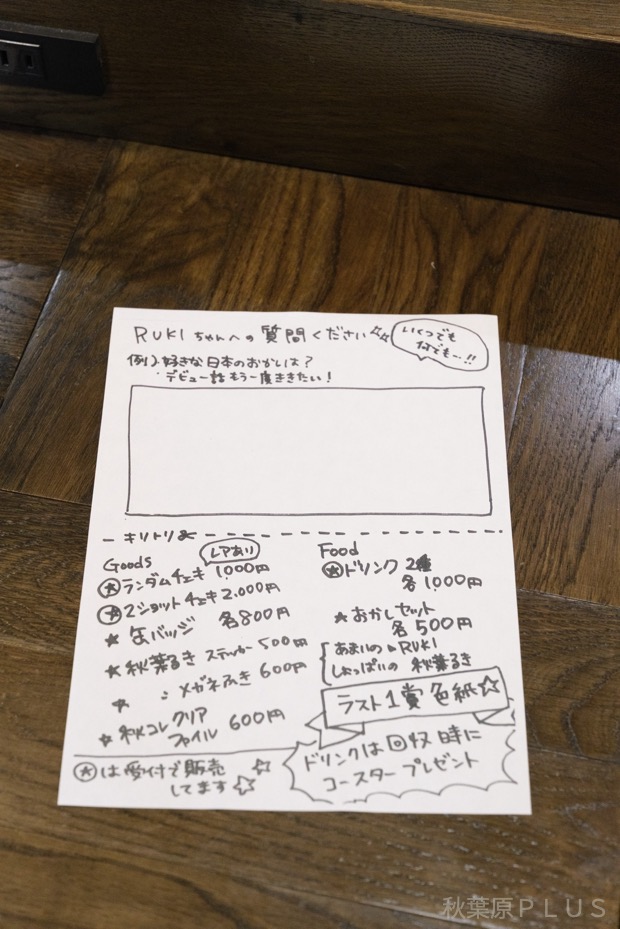 RUKIちゃんへの質問ください☆☆
いくつでも
何でも…!!
例)好きな日本のおかしは?
・デビュー話もう一度ききたい!
キリトリ
Goods
レアあり
★ランダムチェキ 1,000円
★2ショットチェキ 2,000円
★缶バッジ 各800円
★秋葉るき ステッカー 500円
★ 〃 メガネふき 600円
★秋コレ クリア
ファイル 600円
★は受付で販売
してます☆☆
Food
★ドリンク 2種
各1,000円
★おかしセット
各500円
あまいの RUKI
しょっぱいの 秋葉るき
ラスト1賞 色紙☆
ドリンクは回収時に
コースタープレゼント
秋葉原PLUS